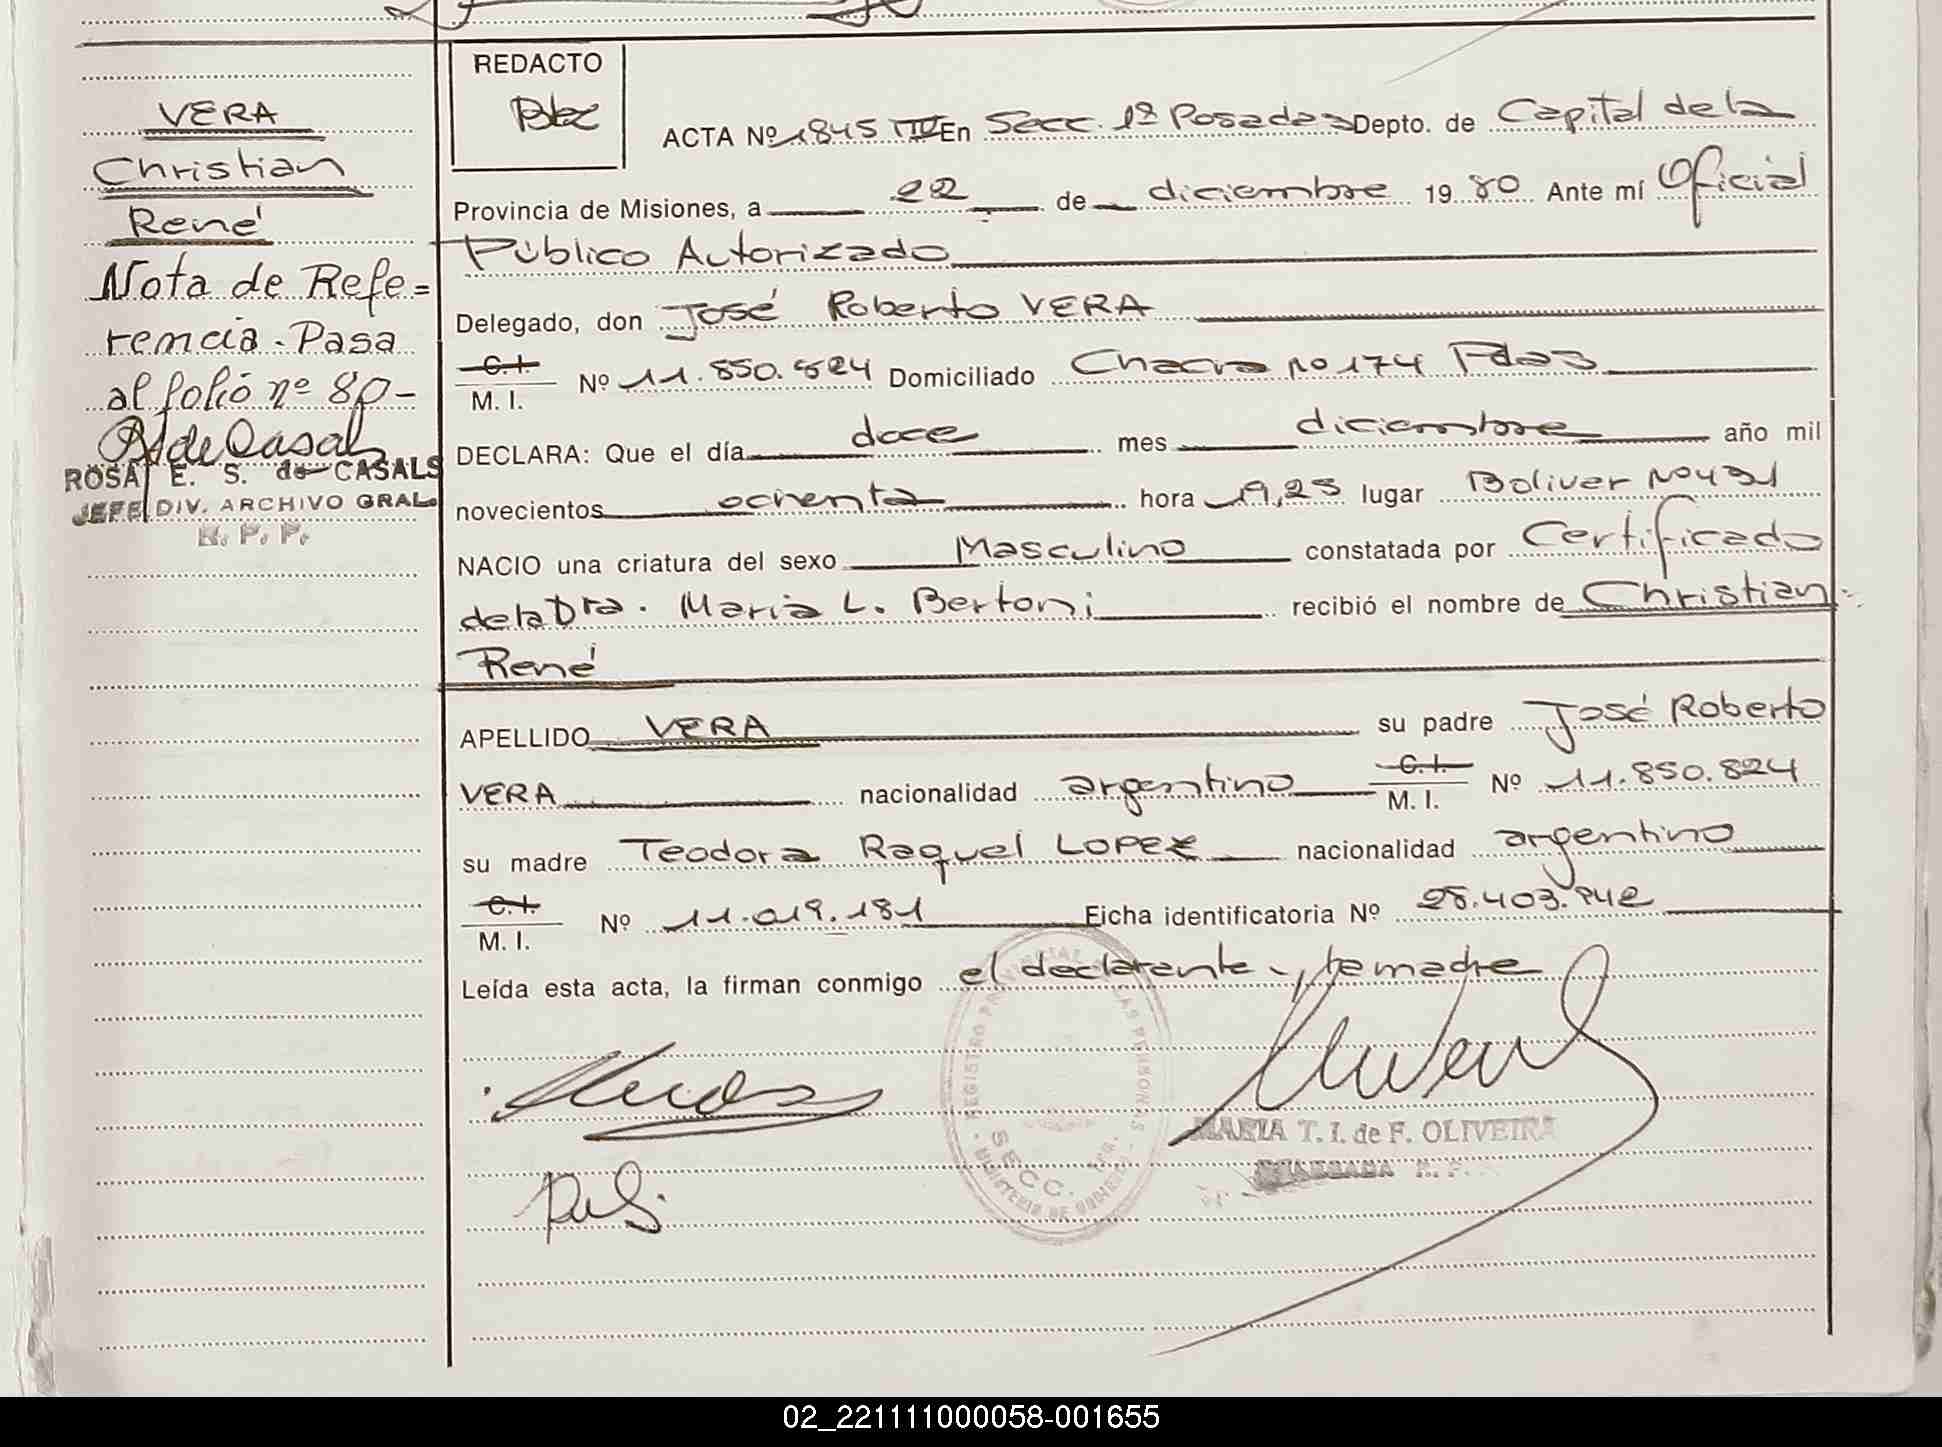 VERA
Christian
René
Nota de Refe=
rencia. Pasa
al folio nº 80-
ROSA E. S. de CASALS
JEFE DIV. ARCHIVO GRAL.
R. P. P.
REDACTO
ACTA Nº 1845 En Secc. 1ª Posadas Depto. de Capital de la
Provincia de Misiones, a 22 de diciembre 1980 Ante mí Oficial
Público Autorizado
Delegado, don José Roberto VERA
C.I.
M. I. Nº 11.850.824 Domiciliado Chacra Nº 174 Pdas
DECLARA: Que el día doce mes diciembre año mil
novecientos ochenta hora 19,25 lugar Bolivar Nº 431
NACIO una criatura del sexo Masculino constatada por Certificado
de la Dra. Maria L. Bertoni recibió el nombre de Christian
René
APELLIDO VERA su padre José Roberto
VERA nacionalidad argentino C.I. M. I. Nº 11.850.824
su madre Teodora Raquel LOPEZ nacionalidad argentino
C.I.
M. I. Nº 11.019.181 Ficha identificatoria Nº 28.403.842
Leída esta acta, la firman conmigo el declarante y la madre
MARIA T. I. de F. OLIVEIRA
DELEGADA R. P.
SECC.
02_221111000058-001655